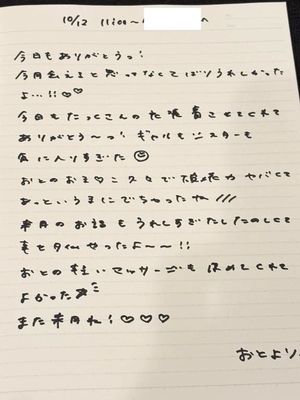 10/12 11:00〜 へ
今日もありがとうっ!
今月会えると思ってなくてばりうれしかった
よ...!!♡♡
今日もたっくさんの 着させてくれて
ありがとう〜っ! ギャルもシスターも
気に入りすぎた☺
おとのお ♡ で ヤバくて
あっというまに でちゃったね///
来月のお話もうれしすぎたしたのしくて
〜〜!!
おとの マッサージも ほめてくれて
よかった
また来月ね!♡♡♡
おとより